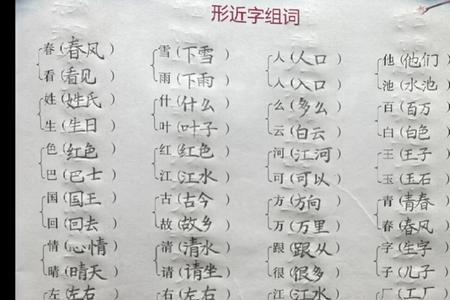 形近字组词
春（春风） 雪（下雪） 人（人口） 他（他们）
看（看见） 雨（下雨） 入（入口） 池（水池）
姓（姓氏） 什（什么） 么（多么） 百（百万）
生（生日） 叶（叶子） 云（白云） 白（白色）
色（红色） 红（红色） 河（江河） 王（王子）
巴（巴士） 江（江水） 可（可以） 玉（玉石）
国（国王） 古（古今） 方（方向） 青（青春）
回（回去） 故（故乡） 万（万里） 春（春风）
情（心情） 清（清水） 跟（跟从） 字（生字）
晴（晴天） 请（请坐） 很（很多） 子（儿子）
左（左右） 右（左右） 江（江水） 厂（工厂）